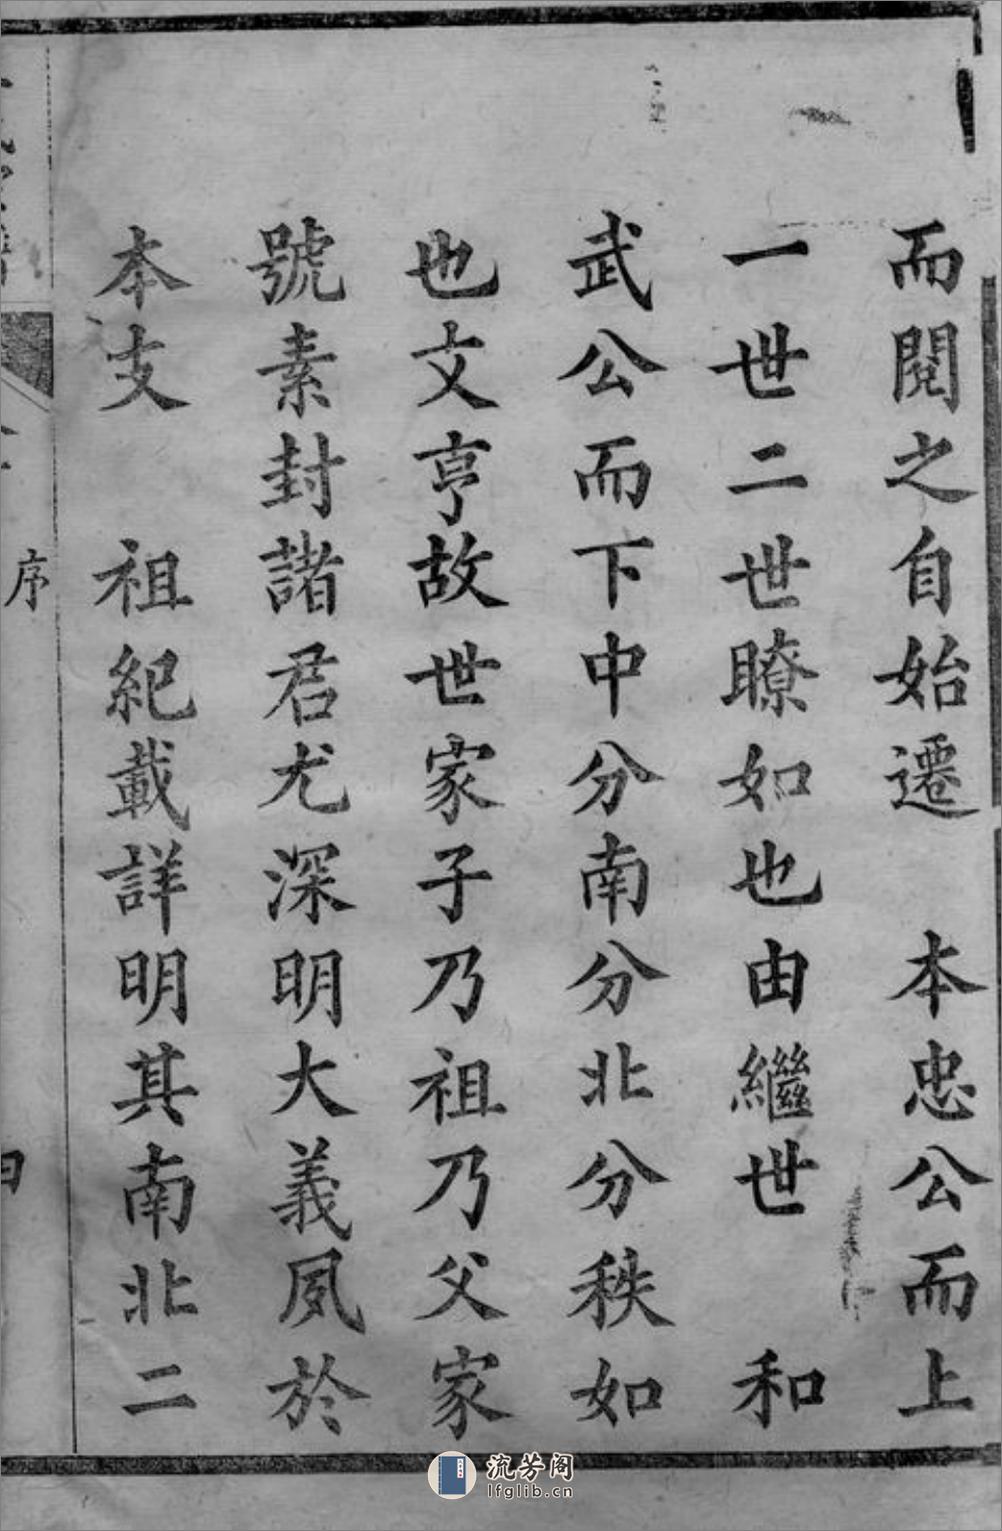 而閱之自始遷　本忠公而上
一世二世瞭如也由繼世　和
武公而下中分南分北分秩如
也文亨故世家子乃祖乃父家
號素封諸君尤深明大義夙於
本支　祖紀載詳明其南北二
序
流芳阁
lfglib.cn